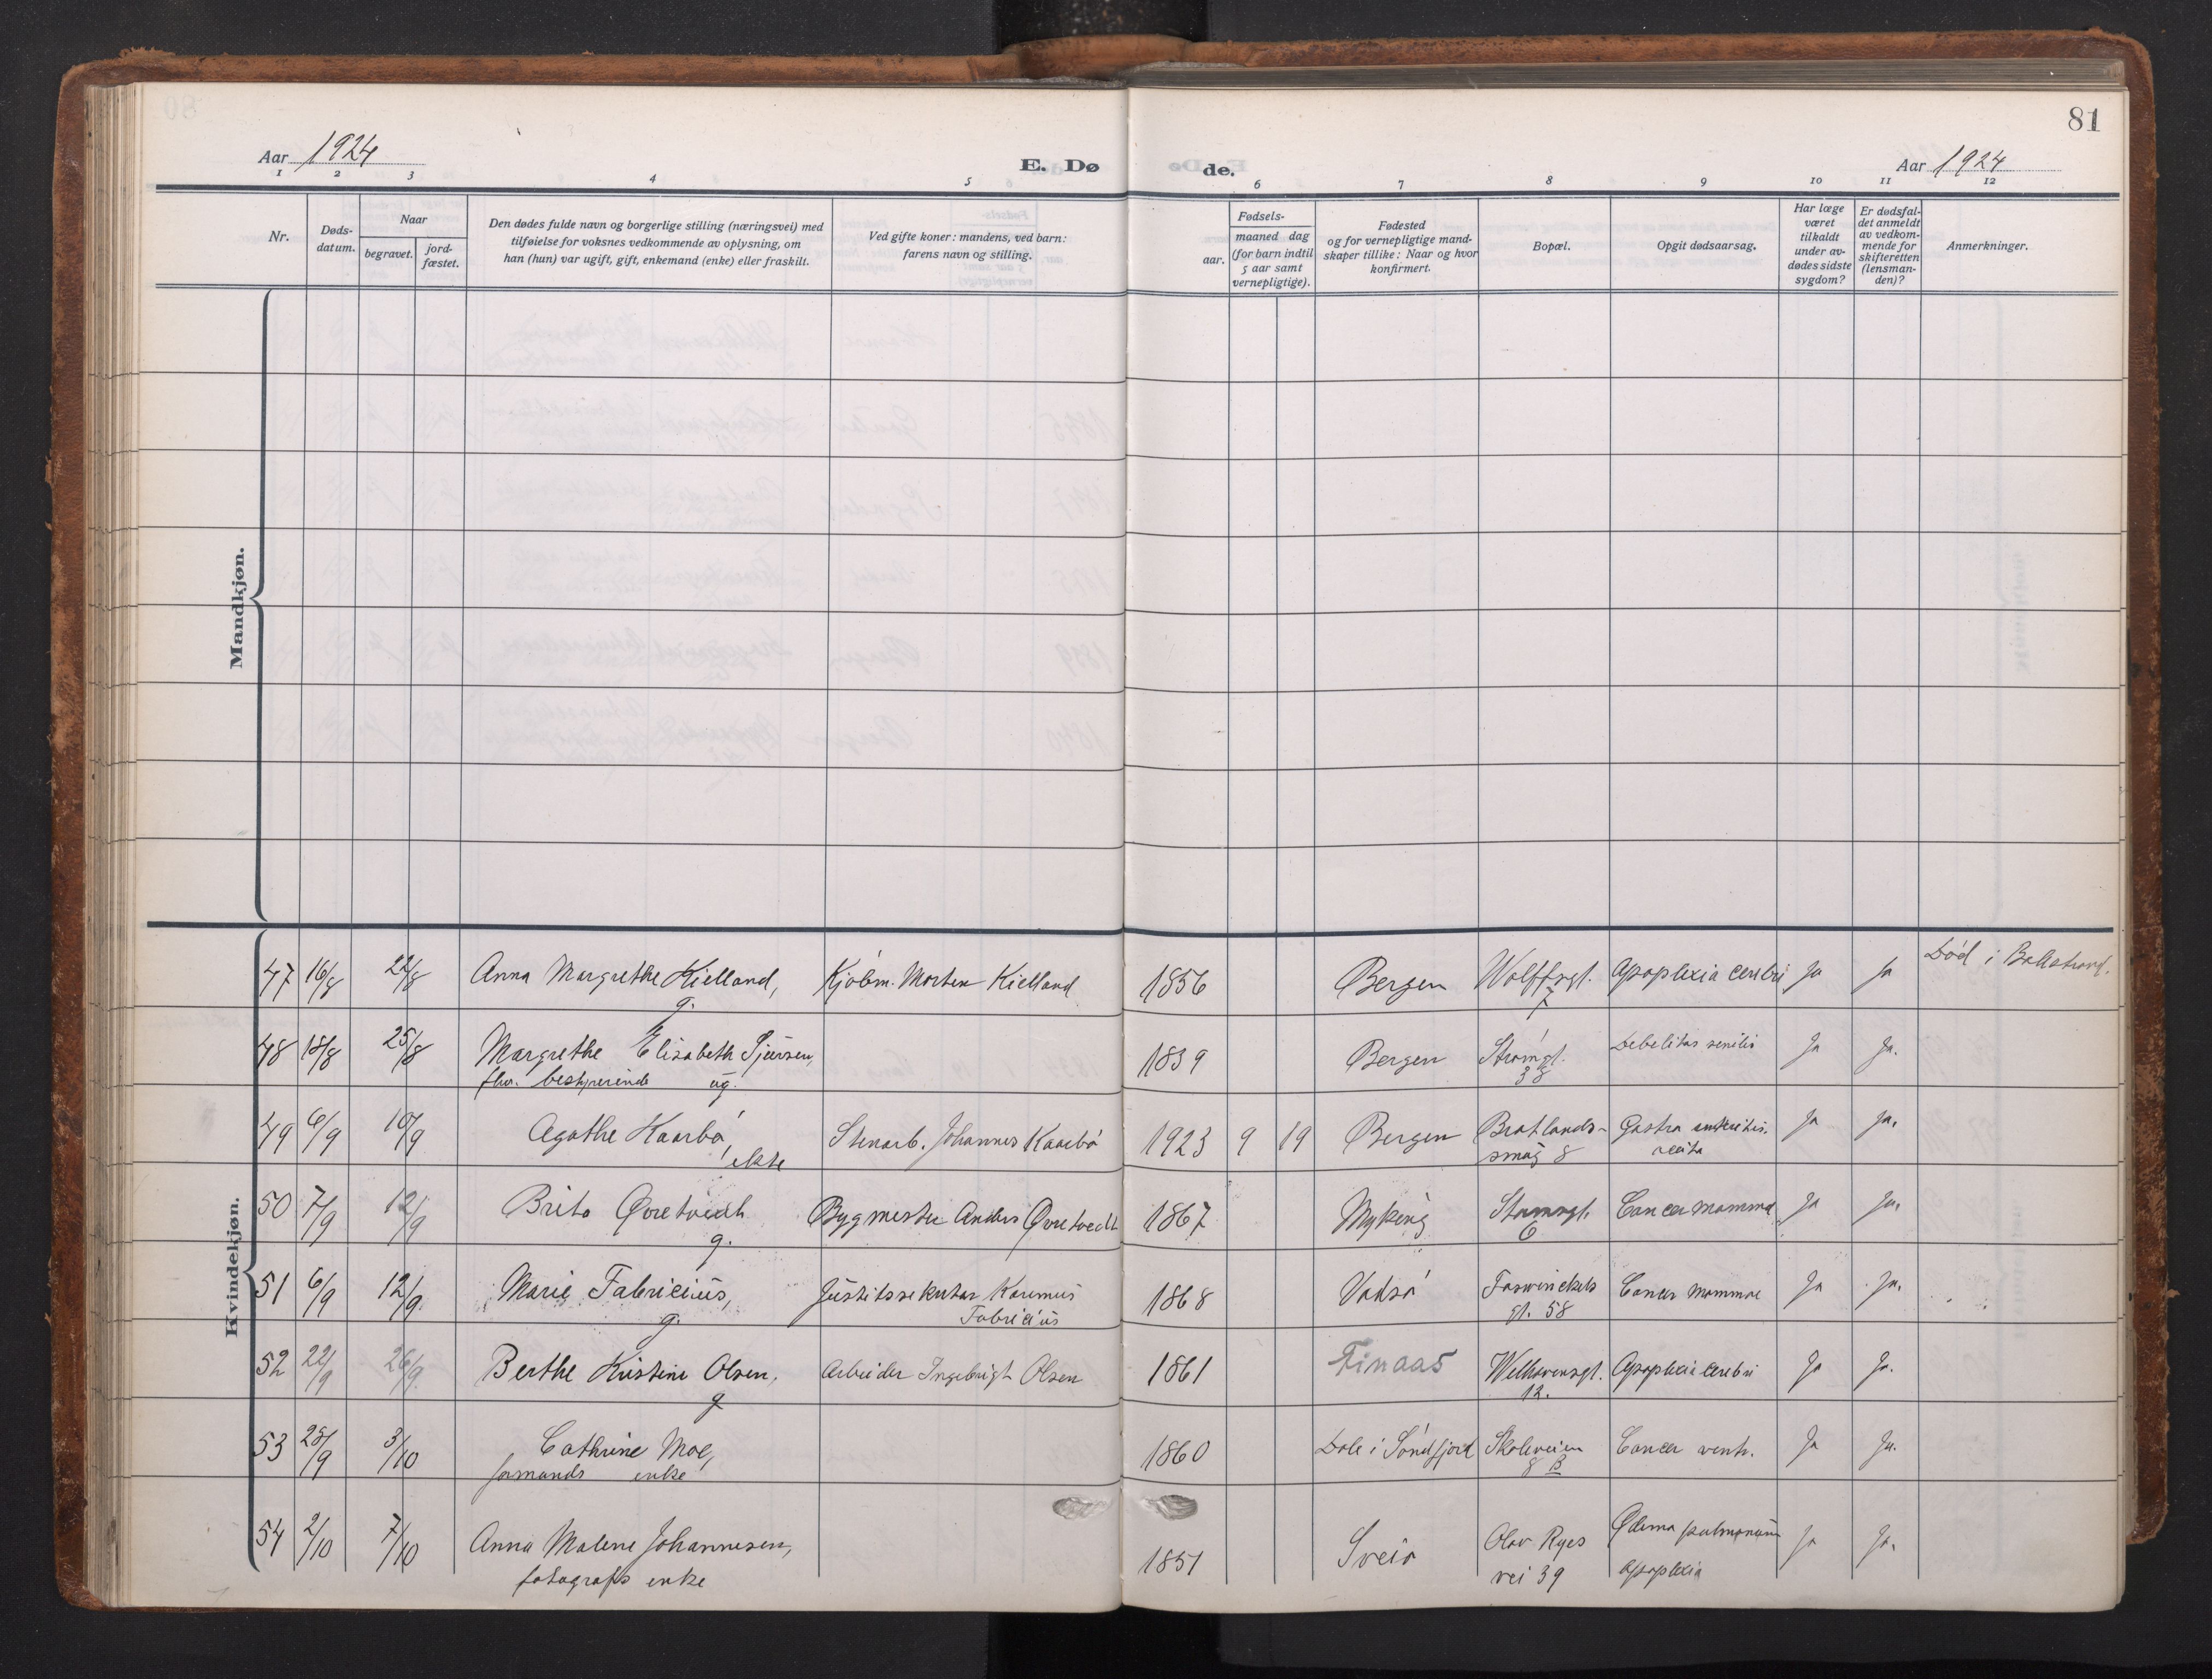 81
Aar 1924
E. Dø
de.
Aar 1924
1 2 3 4 5 6 7 8 9 10 11 12
Nr.
Døds-
datum.
Naar
begravet.
jord-
fæstet.
Den dødes fulde navn og borgerlige stilling (næringsvei) med
tilføielse for voksnes vedkommende av oplysning, om
han (hun) var ugift, gift, enkemand (enke) eller fraskilt.
Ved gifte koner: mandens, ved barn:
farens navn og stilling.
Fødsels-
aar.
maaned dag
(for barn indtil
5 aar samt
vernepligtige).
Fødested
og for vernepligtige mand-
skaper tillike: Naar og hvor
konfirmert.
Bopæl.
Opgit dødsaarsag.
Har læge
været
tilkaldt
under av-
dødes sidste
sygdom?
Er dødsfal-
det anmeldt
av vedkom-
mende for
skifteretten
(lensman-
den)?
Anmerkninger.
Mandkjøn.
Kvindekjøn.
47 16/8 22/8 Anna Margrethe Kielland, Kjøbm. Morten Kielland 1856 Bergen Wolffsgt. Apoplexia cerebri Ja Ja Død i Balestrand.
g. 7
48 18/8 25/8 Margrethe Elisabeth 1839 Bergen Strømgt. Debelitas senilis Ja Ja.
fhv. bestyrerinde ug. 38
49 6/9 10/9 Agathe Kaarbø, Stenarb. Johannes Kaarbø 1923 9 19 Bergen Bratlands- Gastro enteritis. Ja Ja.
ekte smug 8
50 7/9 12/9 Brita Øvretvedt Bygmester Anders Øvretvedt 1867 Myking Cancer mamma Ja Ja.
g. 6
51 6/9 12/9 Marie Fabricius, Justitssekretær Fabricius 1868 Vadsø Foswinckels Cancer mammae Ja Ja.
g. gt. 58
52 22/9 26/9 Berthe Kristine Olsen, Arbeider Ingebrigt Olsen 1861 Finaas Welhavensgt. Apoplexia cerebri Ja Ja.
g 12.
53 28/9 3/10 Cathrine Moe, 1860 Dale i Søndfjord Skoleveien Cancer ventr. Ja Ja.
formands enke 8 B
54 2/10 7/10 Anna Malene Johannesen, 1851 Sveio Olav Ryes Ødema pulmonum Ja Ja.
fotografs enke vei 39 apoplexia